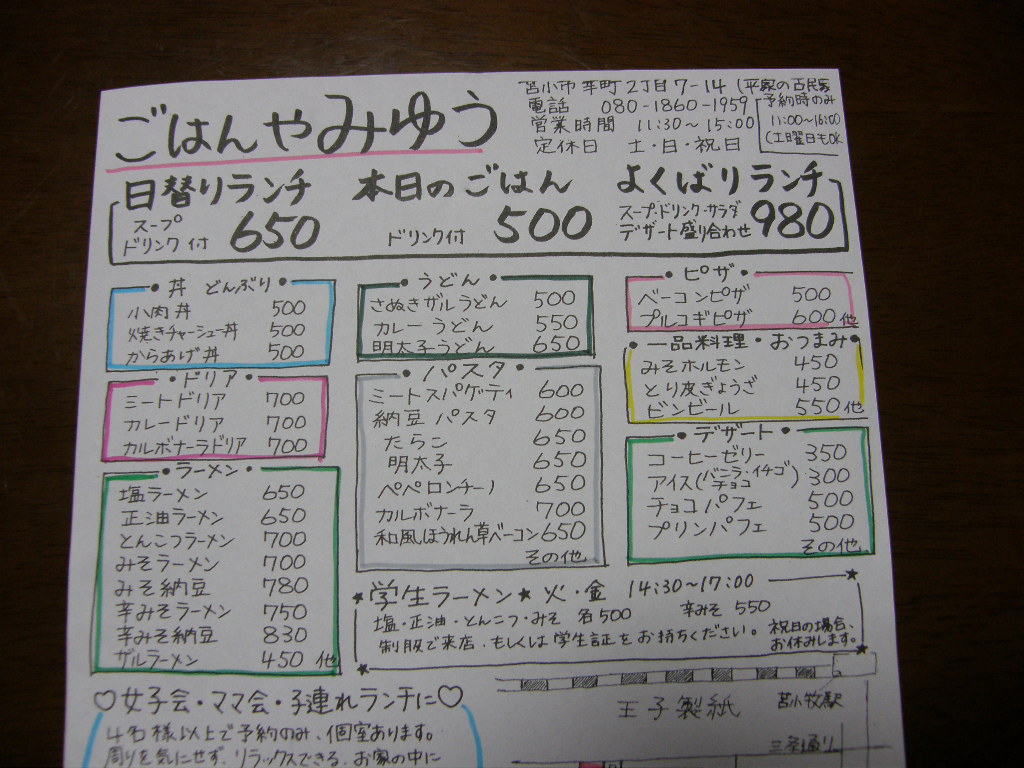 ごはんやみゆう
苫小市 幸町2丁目7-14 (平家の古民家
電話 080-1860-1959
営業時間 11:30～15:00
定休日 土・日・祝日
予約時のみ
11:00～16:00
(土曜日もOK
日替りランチ
スープ
ドリンク付 650
本日のごはん
ドリンク付 500
よくばりランチ
スープ・ドリンク・サラダ
デザート盛り合わせ 980
・丼 どんぶり・
小肉丼 500
焼きチャーシュー丼 500
からあげ丼 500
・ドリア・
ミートドリア 700
カレードリア 700
カルボナーラドリア 700
・ラーメン・
塩ラーメン 650
正油ラーメン 650
とんこつラーメン 700
みそラーメン 700
みそ納豆 780
辛みそラーメン 750
辛みそ納豆 830
ザルラーメン 450 他
・うどん・
さぬきザルうどん 500
カレーうどん 550
明太子うどん 650
・パスタ・
ミートスパゲティ 600
納豆パスタ 600
たらこ 650
明太子 650
ペペロンチーノ 650
カルボナーラ 700
和風ほうれん草ベーコン 650
その他
・ピザ・
ベーコンピザ 500
プルコギピザ 600他
・一品料理・おつまみ・
みそホルモン 450
とり皮ぎょうざ 450
ビンビール 550他
・デザート・
コーヒーゼリー 350
アイス(バニラ・イチゴ チョコ) 300
チョコパフェ 500
プリンパフェ 500
その他
★学生ラーメン★ 火・金 14:30～17:00
塩・正油・とんこつ・みそ 各500 辛みそ 550
制服で来店、もしくは学生証をお持ちください。
祝日の場合、
お休みします。
♡女子会・ママ会・子連れランチに♡
4名様以上で予約のみ、個室あります。
周りを気にせず、リラックスできる、お家の中に
王子製紙
苫小牧駅
三条通り